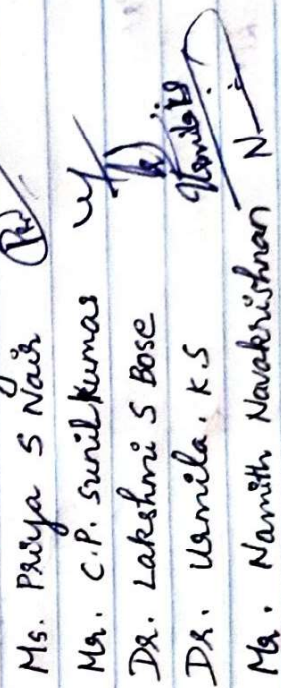 Ms. Priya S Nair
Mr. C.P. Sunil Kumar
Dr. Lakshmi S Bose
Dr. Urmila. K.S
Mr. Namith Navakrishnan